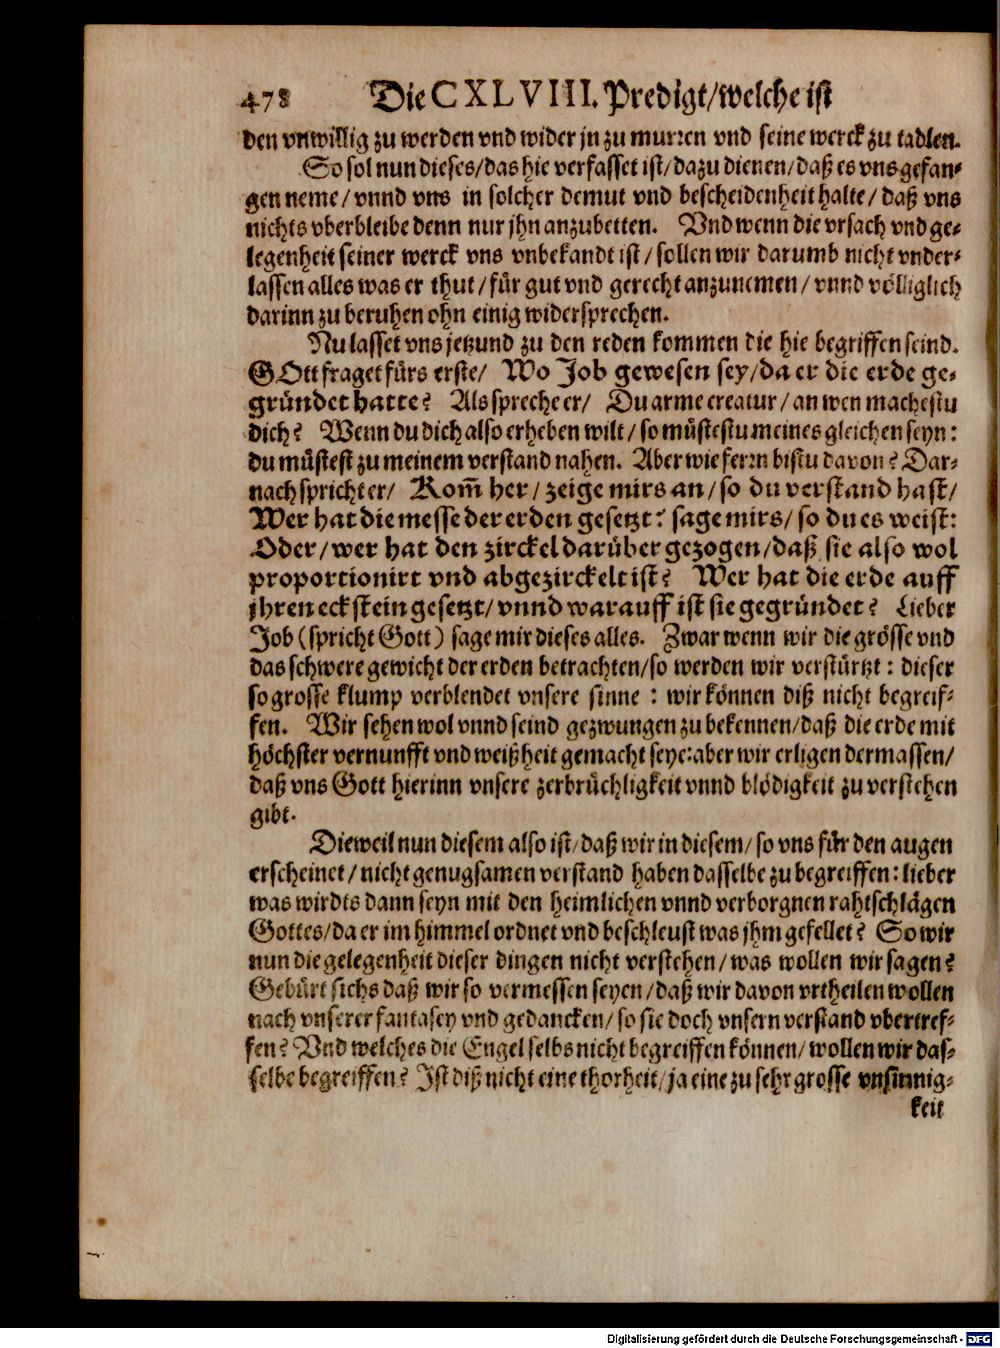 478 Die CXLVIII. Predigt/welche ist
den vnwillig zu werden vnd wider jn zu murren vnd seine werck zu tadlen.
So sol nun dieses/das hie verfasset ist/dazu dienen/daß es vns gefan-
gen neme/vnnd vns in solcher demut vnd bescheidenheit halte/daß vns
nichts vberbleibe denn nur jhn anzubetten. Vnd wenn die vrsach vnd ge-
legenheit seiner werck vns vnbekandt ist/sollen wir darumb nicht vnder-
lassen alles was er thut/für gut vnd gerecht anzunemen/vnnd völliglich
darinn zu beruhen ohn einig widersprechen.
Nu lasset vns jetzund zu den reden kommen die hie begriffen seind.
GOtt fraget fürs erste/ Wo Job gewesen sey/da er die erde ge-
gründet hatte? Als spreche er/ Du arme creatur/an wen machestu
dich? Wenn du dich also erheben wilt/so müstestu meines gleichen seyn:
du müstest zu meinem verstand nahen. Aber wie ferrn bistu davon? Dar-
nach spricht er/ Kom̃ her/zeige mirs an/so du verstand hast/
Wer hat die messe der erden gesetzt? sage mirs/so du es weist:
Oder/wer hat den zirckel darüber gezogen/daß sie also wol
proportionirt vnd abgezirckelt ist? Wer hat die erde auff
jhren eckstein gesetzt/vnnd warauff ist sie gegründet? Lieber
Job (spricht Gott) sage mir dieses alles. Zwar wenn wir die grösse vnd
das schwere gewicht der erden betrachten/so werden wir verstürtzt: dieser
so grosse klump verblendet vnsere sinne: wir können diß nicht begreif-
fen. Wir sehen wol vnnd seind gezwungen zu bekennen/daß die erde mit
höchster vernunfft vnd weißheit gemacht seye: aber wir erligen dermassen/
daß vns Gott hierinn vnsere zerbrüchligkeit vnnd blödigkeit zu verstehen
gibt.
Dieweil nun diesem also ist/daß wir in diesem/so vns für den augen
erscheinet/nicht genugsamen verstand haben dasselbe zu begreiffen: lieber
was wirdts dann seyn mit den heimlichen vnnd verborgnen rahtschlägen
Gottes/da er im himmel ordnet vnd beschleust was jhm gefellet? So wir
nun die gelegenheit dieser dingen nicht verstehen/was wollen wir sagen?
Gebürt sichs daß wir so vermessen seyen/daß wir davon vrtheilen wollen
nach vnserer fantasey vnd gedancken/so sie doch vnsern verstand vbertref-
fen? Vnd welches die Engel selbs nicht begreiffen können/wollen wir das-
selbe begreiffen? Ist diß nicht eine thorheit/ja eine zu sehr grosse vnsinnig-
keit
Digitalisierung gefördert durch die Deutsche Forschungsgemeinschaft - DFG